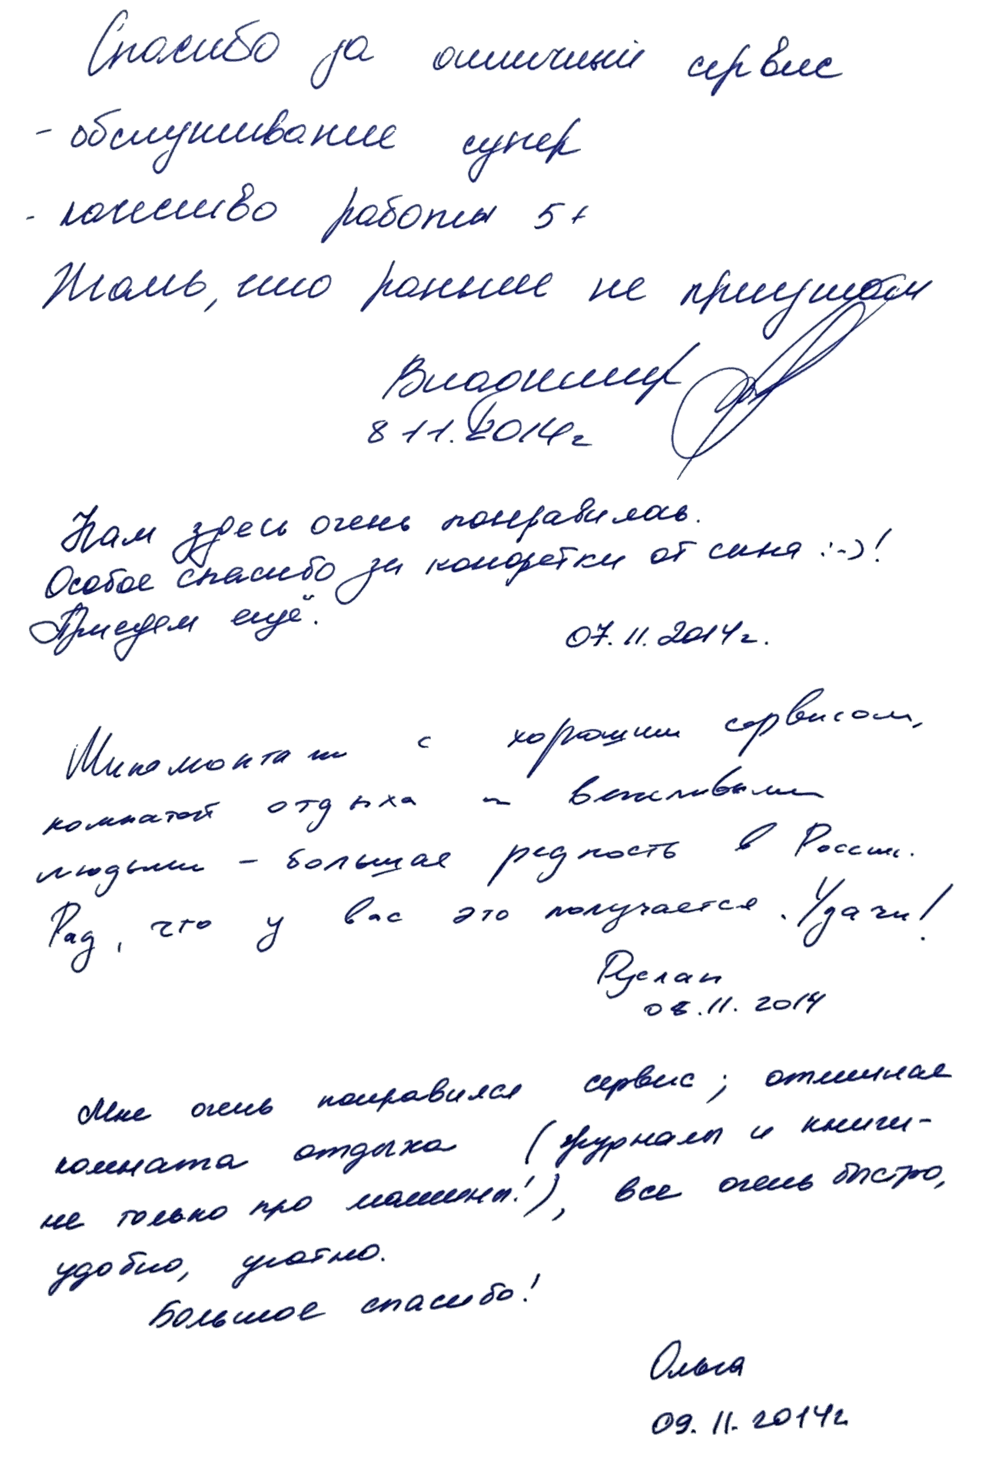 Спасибо за отличный сервис
- обслуживание супер
- качество работы 5+
Жаль, что раньше не приезжали
Владимир
8 11. 2014г
Нам здесь очень понравилось.
Особое спасибо за конфетки от сына :-)!
Приедем ещё.
07.11.2014г.
Шиномонтаж с хорошим сервисом,
комнатой отдыха и вежливыми
людьми - большая редкость в России.
Рад, что у вас это получается. Удачи!
Руслан
08.11.2014
Мне очень понравился сервис; отличная
комната отдыха (журналы и книги-
не только про машины!), все очень быстро,
удобно, уютно.
Большое спасибо!
Ольга
09.11.2014г